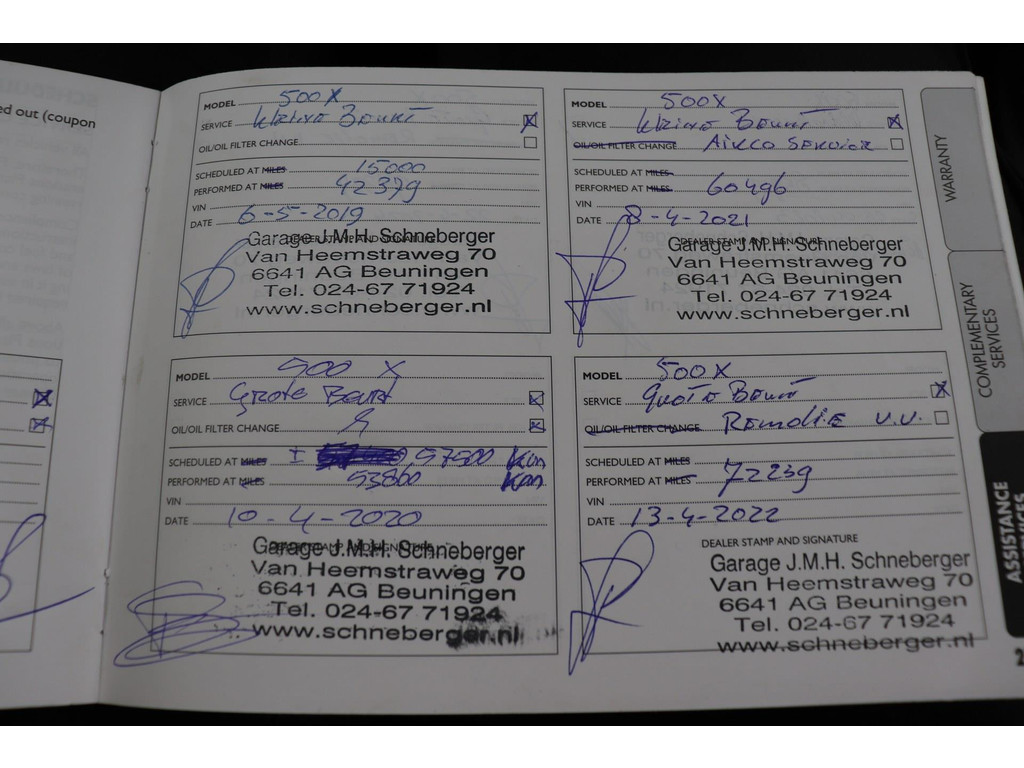 ed out (coupon
MODEL 500 X
SERVICE Kleine Beurt
OIL/OIL FILTER CHANGE
SCHEDULED AT MILES 15000
PERFORMED AT MILES 42379
VIN
DATE 6-5-2019
DEALER STAMP AND SIGNATURE
Garage J.M.H. Schneberger
Van Heemstraweg 70
6641 AG Beuningen
Tel. 024-67 71924
www.schneberger.nl
MODEL 500X
SERVICE Kleine Beurt
OIL/OIL FILTER CHANGE Airco Service
SCHEDULED AT MILES
PERFORMED AT MILES 60496
VIN
DATE 8-4-2021
DEALER STAMP AND SIGNATURE
Garage J.M.H. Schneberger
Van Heemstraweg 70
6641 AG Beuningen
Tel. 024-67 71924
www.schneberger.nl
MODEL 500 X
SERVICE Grote Beurt
OIL/OIL FILTER CHANGE
SCHEDULED AT MILES ± 57500 Km
PERFORMED AT MILES 53800 Km
VIN
DATE 10-4-2020
DEALER STAMP AND SIGNATURE
Garage J.M.H. Schneberger
Van Heemstraweg 70
6641 AG Beuningen
Tel. 024-67 71924
www.schneberger.nl
MODEL 500X
SERVICE Grote Beurt
OIL/OIL FILTER CHANGE Remolie V.V.
SCHEDULED AT MILES
PERFORMED AT MILES 72239
VIN
DATE 13-4-2022
DEALER STAMP AND SIGNATURE
Garage J.M.H. Schneberger
Van Heemstraweg 70
6641 AG Beuningen
Tel. 024-67 71924
www.schneberger.nl
WARRANTY
COMPLEMENTARY
SERVICES
ASSISTANCE
2